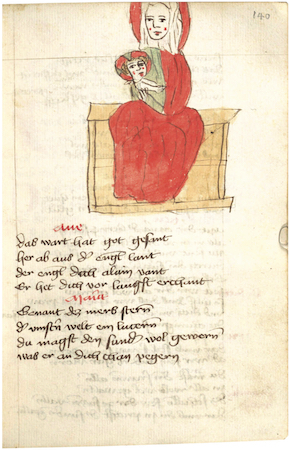 140
Aue
das wart hat got gesant
her ab aus d' engl lant
der engl dich alain vant
Er het dich vor langst erchant
Maria
Genant des mers stern
d' vinst'n welt ein lucern
du magst den sund' wol gewern
was er an dich chan pegern